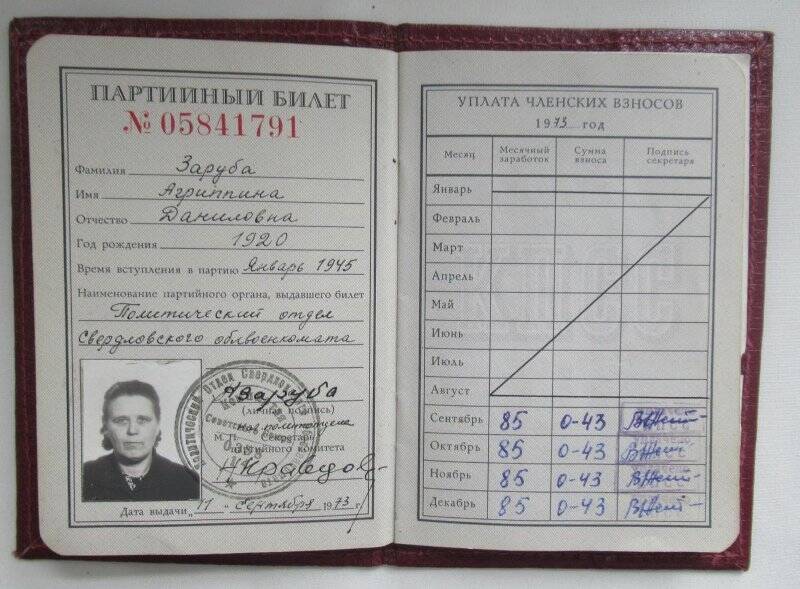 ПАРТИЙНЫЙ БИЛЕТ
№ 05841791
Фамилия Заруба
Имя Агриппина
Отчество Даниловна
Год рождения 1920
Время вступления в партию Январь 1945
Наименование партийного органа, выдавшего билет
Политический отдел
Свердловского облвоенкомата
АЗаруба
(личная подпись)
Нач. политотдела
М. П. Секретарь
партийного комитета
Дата выдачи „ 11 “ Сентября 1973 г.
УПЛАТА ЧЛЕНСКИХ ВЗНОСОВ
1973 год
Месяц Месячный заработок Сумма взноса Подпись секретаря
Январь
Февраль
Март
Апрель
Май
Июнь
Июль
Август
Сентябрь 85 0-43
Октябрь 85 0-43
Ноябрь 85 0-43
Декабрь 85 0-43